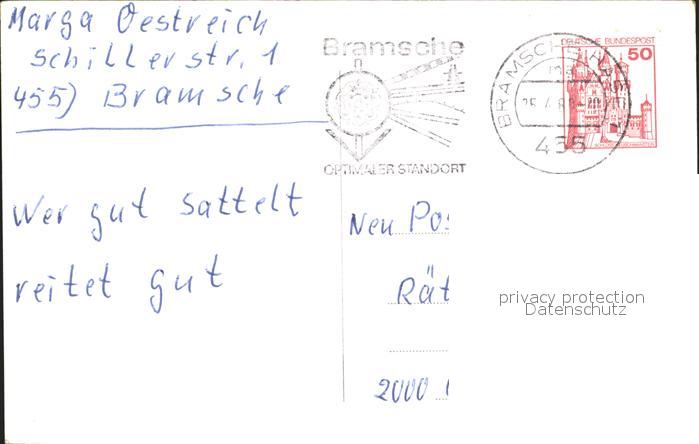 Marga Oestreich
Schillerstr. 1
455) Bramsche
Bramsche
OPTIMALER STANDORT
BRAMSCHE
455
DEUTSCHE BUNDESPOST
50
Wer gut sattelt
reitet gut
Neu Pos
Rät
2000
privacy protection
Datenschutz